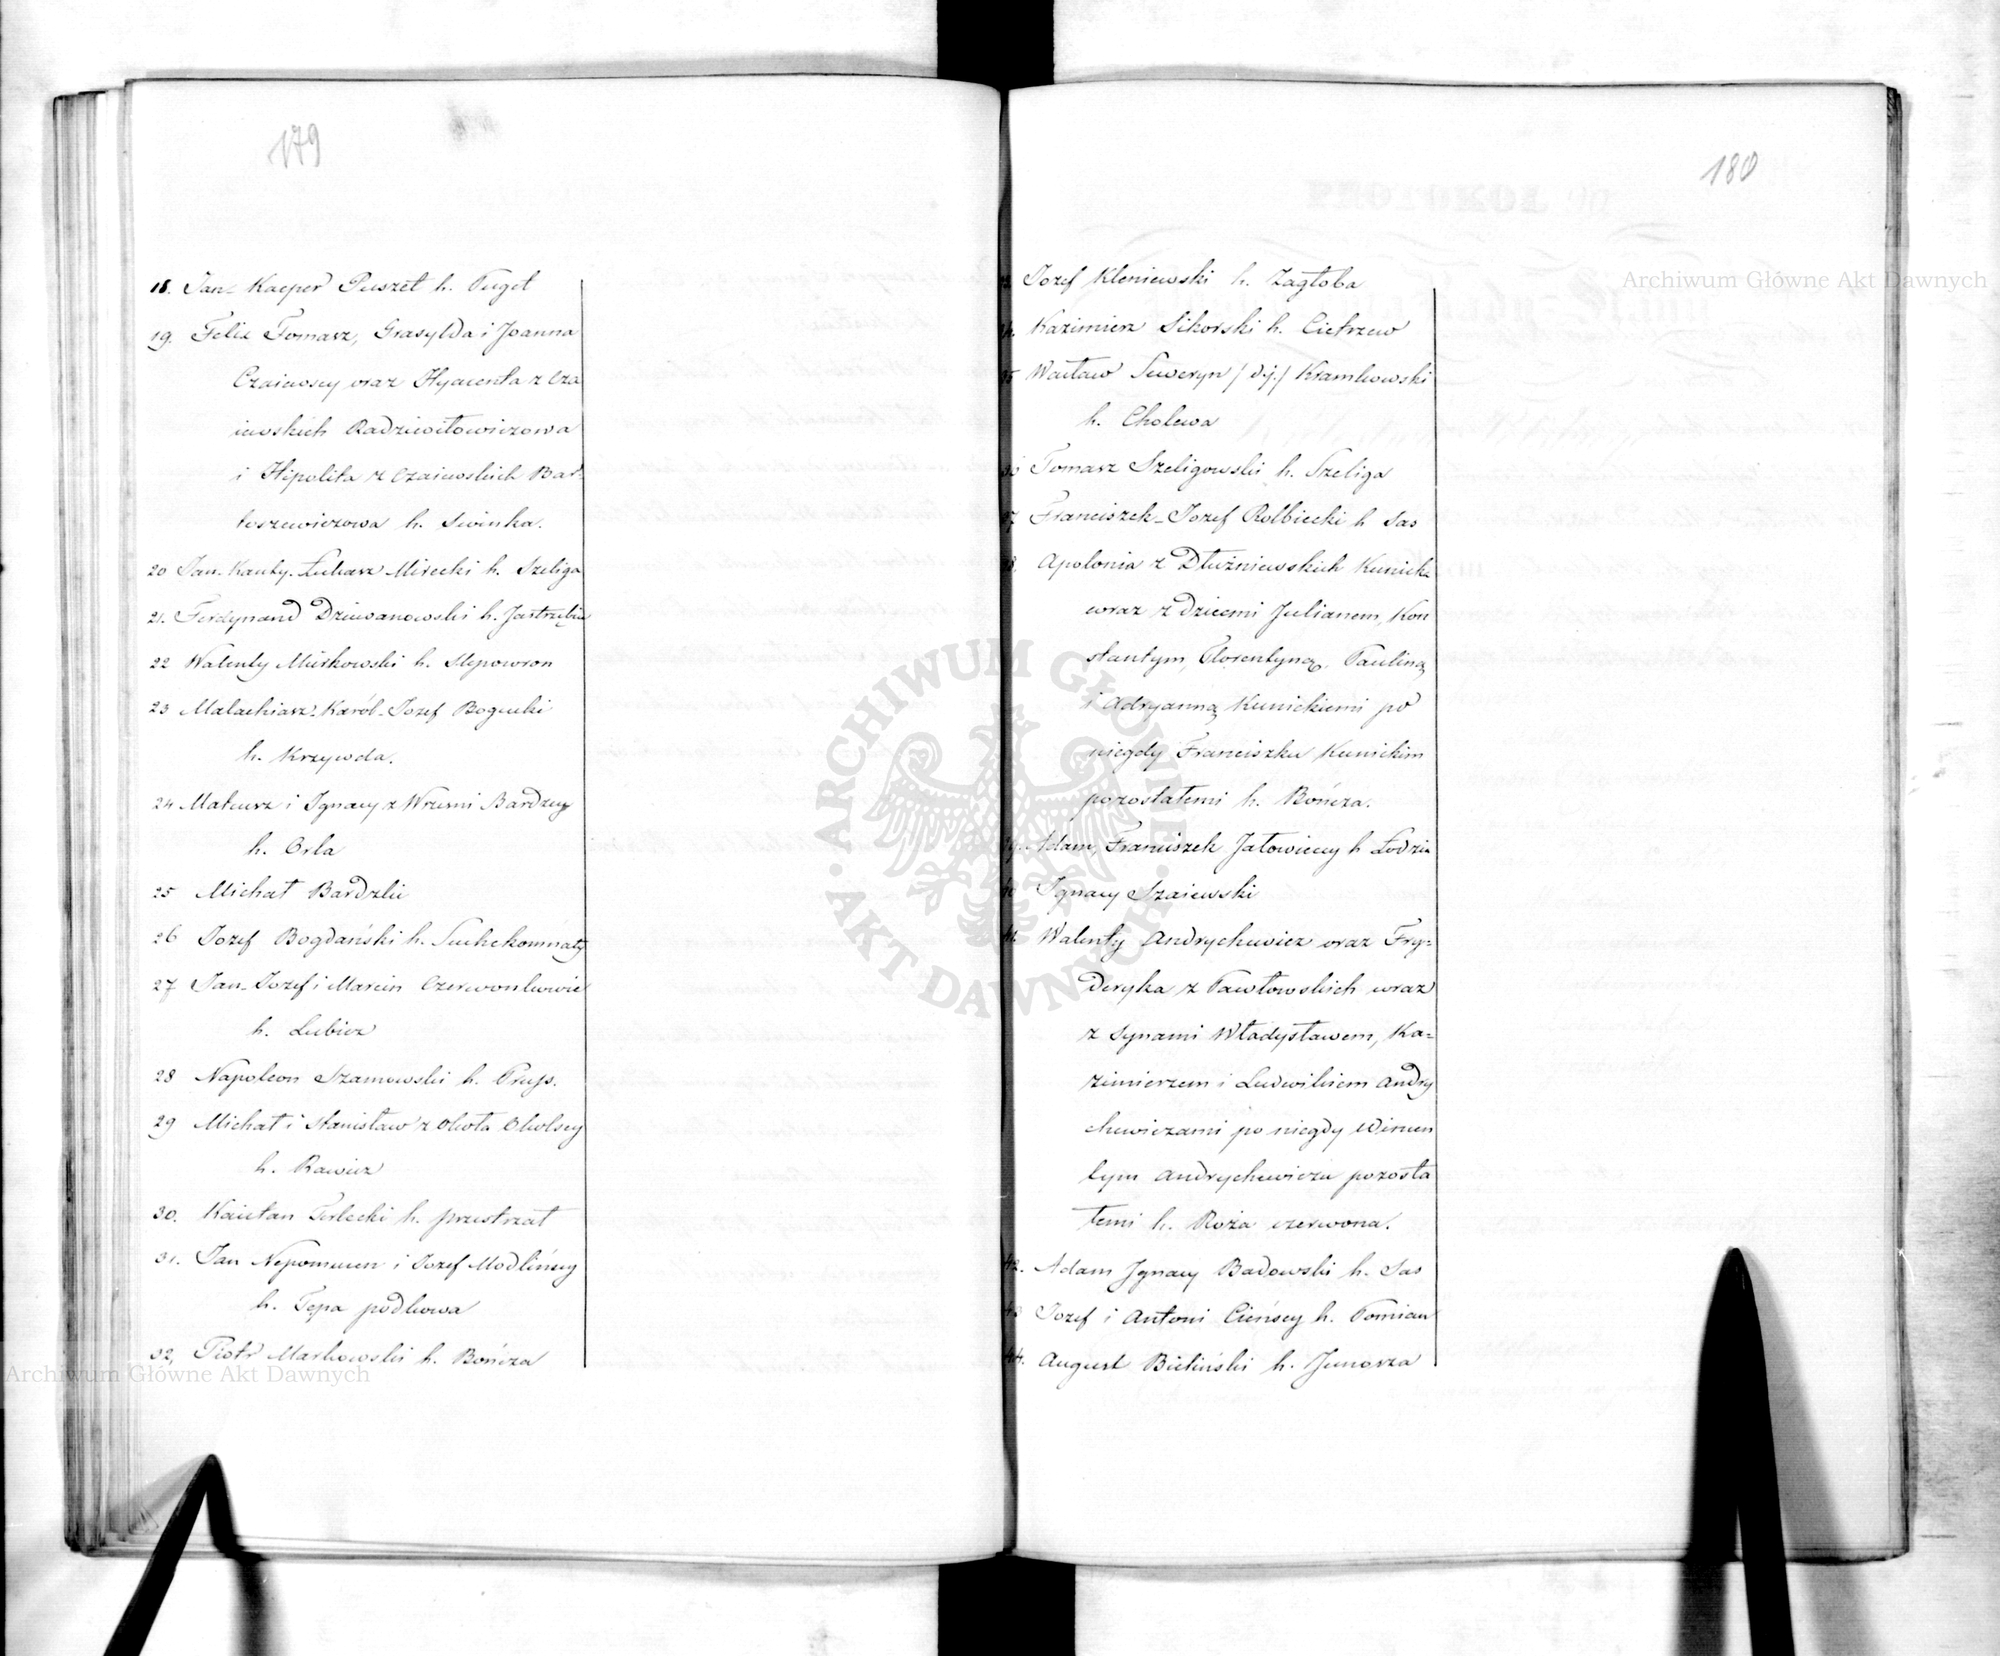 179
18. Jan Kacper Puszet h. Puget
19. Felix Tomasz, Grasylda i Joanna
Czaiewscy oraz Hyacenta z Cza
iewskich Radziwiłowiczowa
i Hipolita z Czaiewskich Bar-
toszewiczowa h. Swinka.
20 Jan Kanty Łukasz Mirecki h. Szeliga
21. Ferdynand Dziewanowski h. Jastrzębiec
22 Walenty Mirkowski h. Slepowron
23 Malachiasz Karól Jozef Bogucki
h. Krzywda.
24 Mateusz i Ignacy z Wrzesni Bardzcy
h. Orla
25 Michał Bardzki
26 Jozef Bogdański h. Suchekomnaty
27 Jan Jozef i Marcin
h. Lubicz
28 Napoleon Szamowski h. Prus.
29 Michał i Stanisław z Okoła Okolscy
h. Rawicz
30. Kaietan Terlecki h. przestrzał
31. Jan Nepomucen i Jozef Modlińscy
h. Tępa podkowa
32, Piotr Markowski h. Bończa
180
Jozef Kleniewski h. Zagłoba
Kazimierz Sikorski h. Cietrzew
35 Wacław Seweryn /dj./ Kramkowski
h. Cholewa
36 Tomasz Szeligowski h. Szeliga
37 Franciszek Jozef Rolbiecki h Sas
38. Apolonia z Dłużniewskich Kunicka
wraz z dziecmi Julianem, Kon
stantym, Florentyną, Pauliną
i Adryanną Kunickiemi po
niegdy Franciszku Kunickim
pozostałemi h. Bończa.
39. Adam, Franciszek Jałowiccy h Łodzia
40 Ignacy Szaiewski
41. Walenty Andrychewicz oraz Fry-
deryka z Pawłowskich wraz
z synami Władysławem, Ka-
zimierzem i Ludwikiem Andry
chewiczami po niegdy Wincen
tym Andrychewiczu pozosta
łemi h. Roża czerwona.
42. Adam Ignacy Badowski h. Sas
43 Jozef i Antoni Cieńscy h. Pomian
44. August Bieliński h. Junosza
Archiwum Główne Akt Dawnych
ARCHIWUM GŁÓWNE AKT DAWNYCH
Archiwum Główne Akt Dawnych